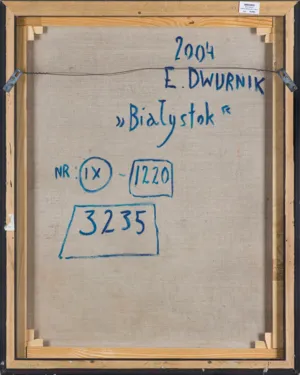 2004
E. DWURNIK
„Białystok"
NR: IX - 1220
3235